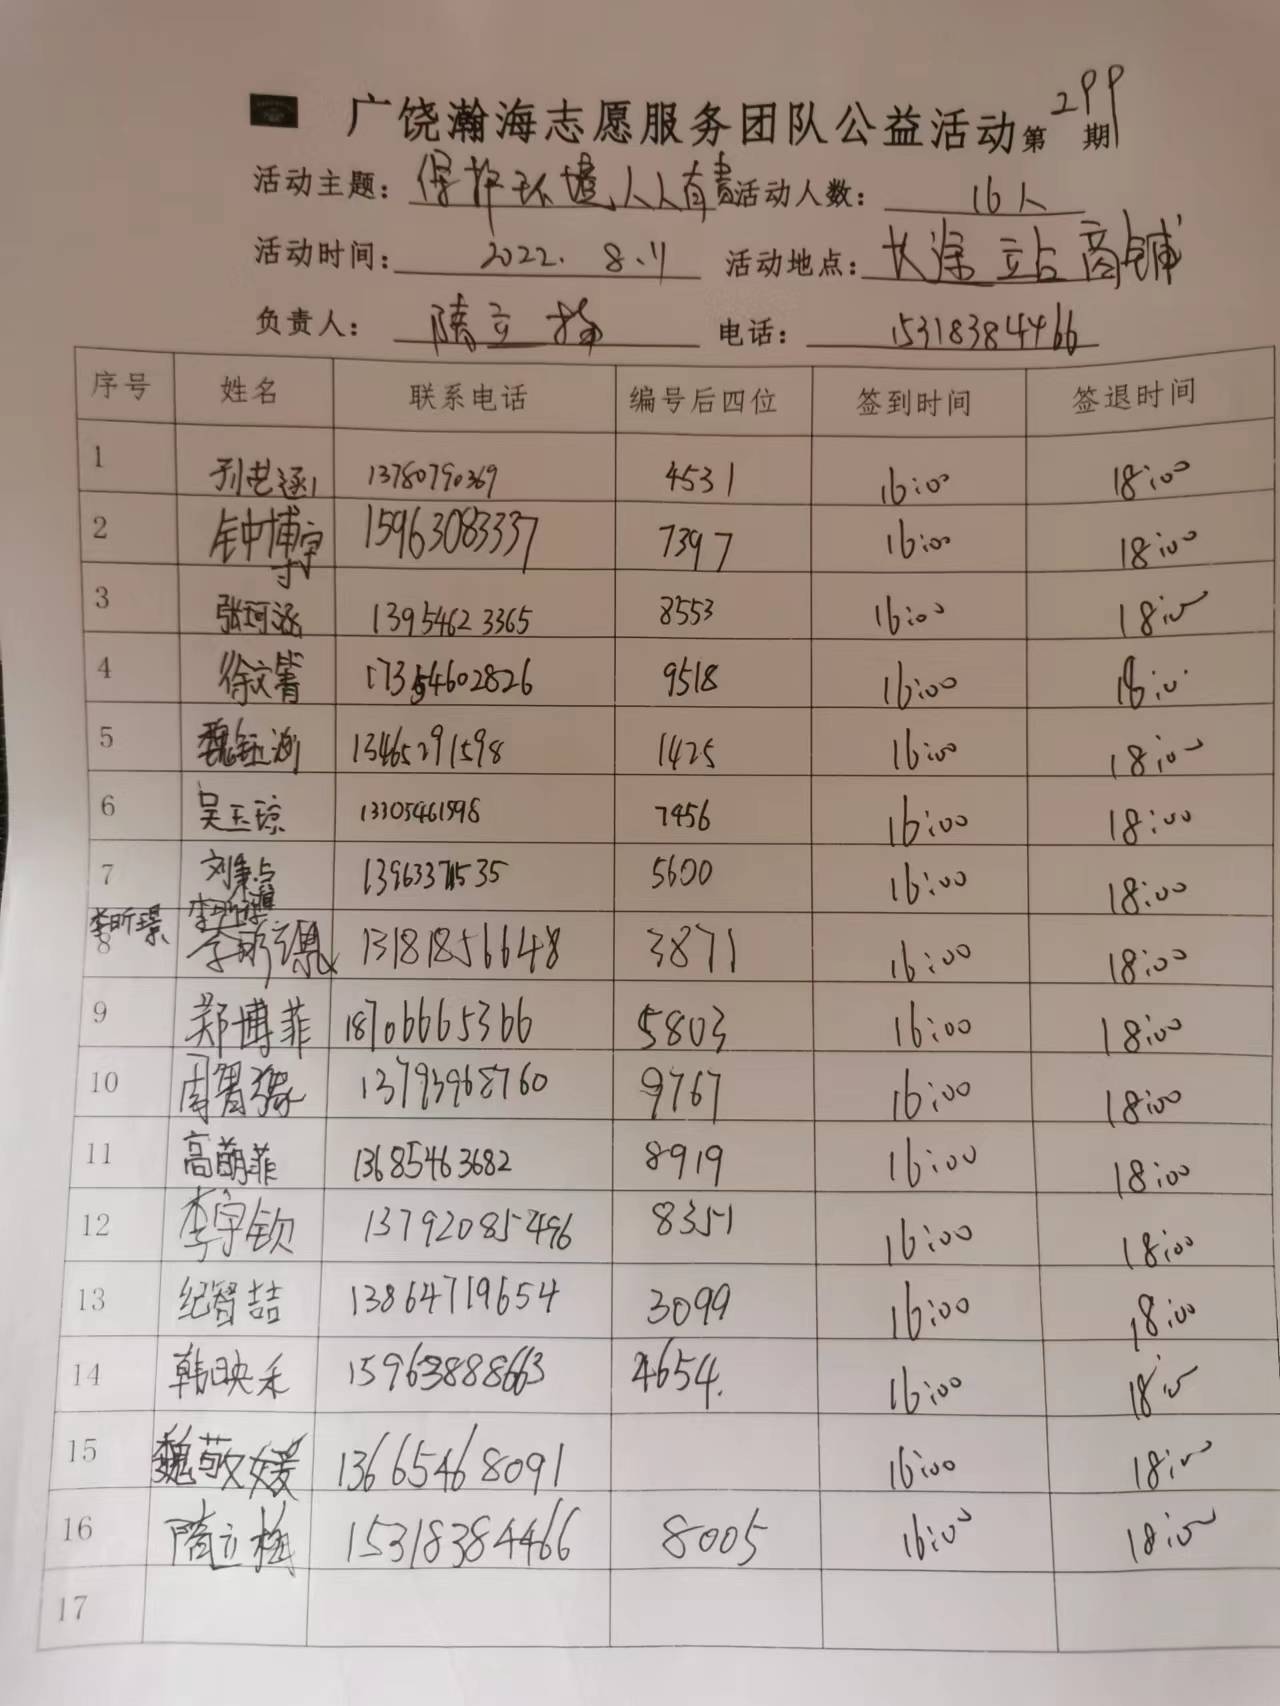 广饶瀚海志愿服务团队公益活动第299期
活动主题: 保护环境,人人有责 活动人数: 16人
活动时间: 2022.8.11 活动地点: 长途站商铺
负责人: 隋立梅 电话: 15318384466
序号 姓名 联系电话 编号后四位 签到时间 签退时间
1 13780790369 4531 16:00 18:00
2 钟博宇 15963083337 7397 16:00 18:00
3 张珂涵 13954623365 8553 16:00 18:00
4 徐文箐 17354602826 9518 16:00 18:00
5 魏钰渊 13465291598 1425 16:00 18:00
6 吴玉琼 13305461598 7456 16:00 18:00
7 刘 5600 16:00 18:00
李昕璟
8 李昕璟 13181856648 3871 16:00 18:00
9 郑博菲 18706665366 5803 16:00 18:00
10 周智豫 13793968760 9767 16:00 18:00
11 高萌菲 13685463682 8919 16:00 18:00
12 李宇钦 13792085496 8351 16:00 18:00
13 纪智喆 13864719654 3099 16:00 18:00
14 韩映禾 15963888663 4654. 16:00 18:00
15 魏敬媛 13665468091 16:00 18:00
16 隋立梅 15318384466 8005 16:00 18:00
17